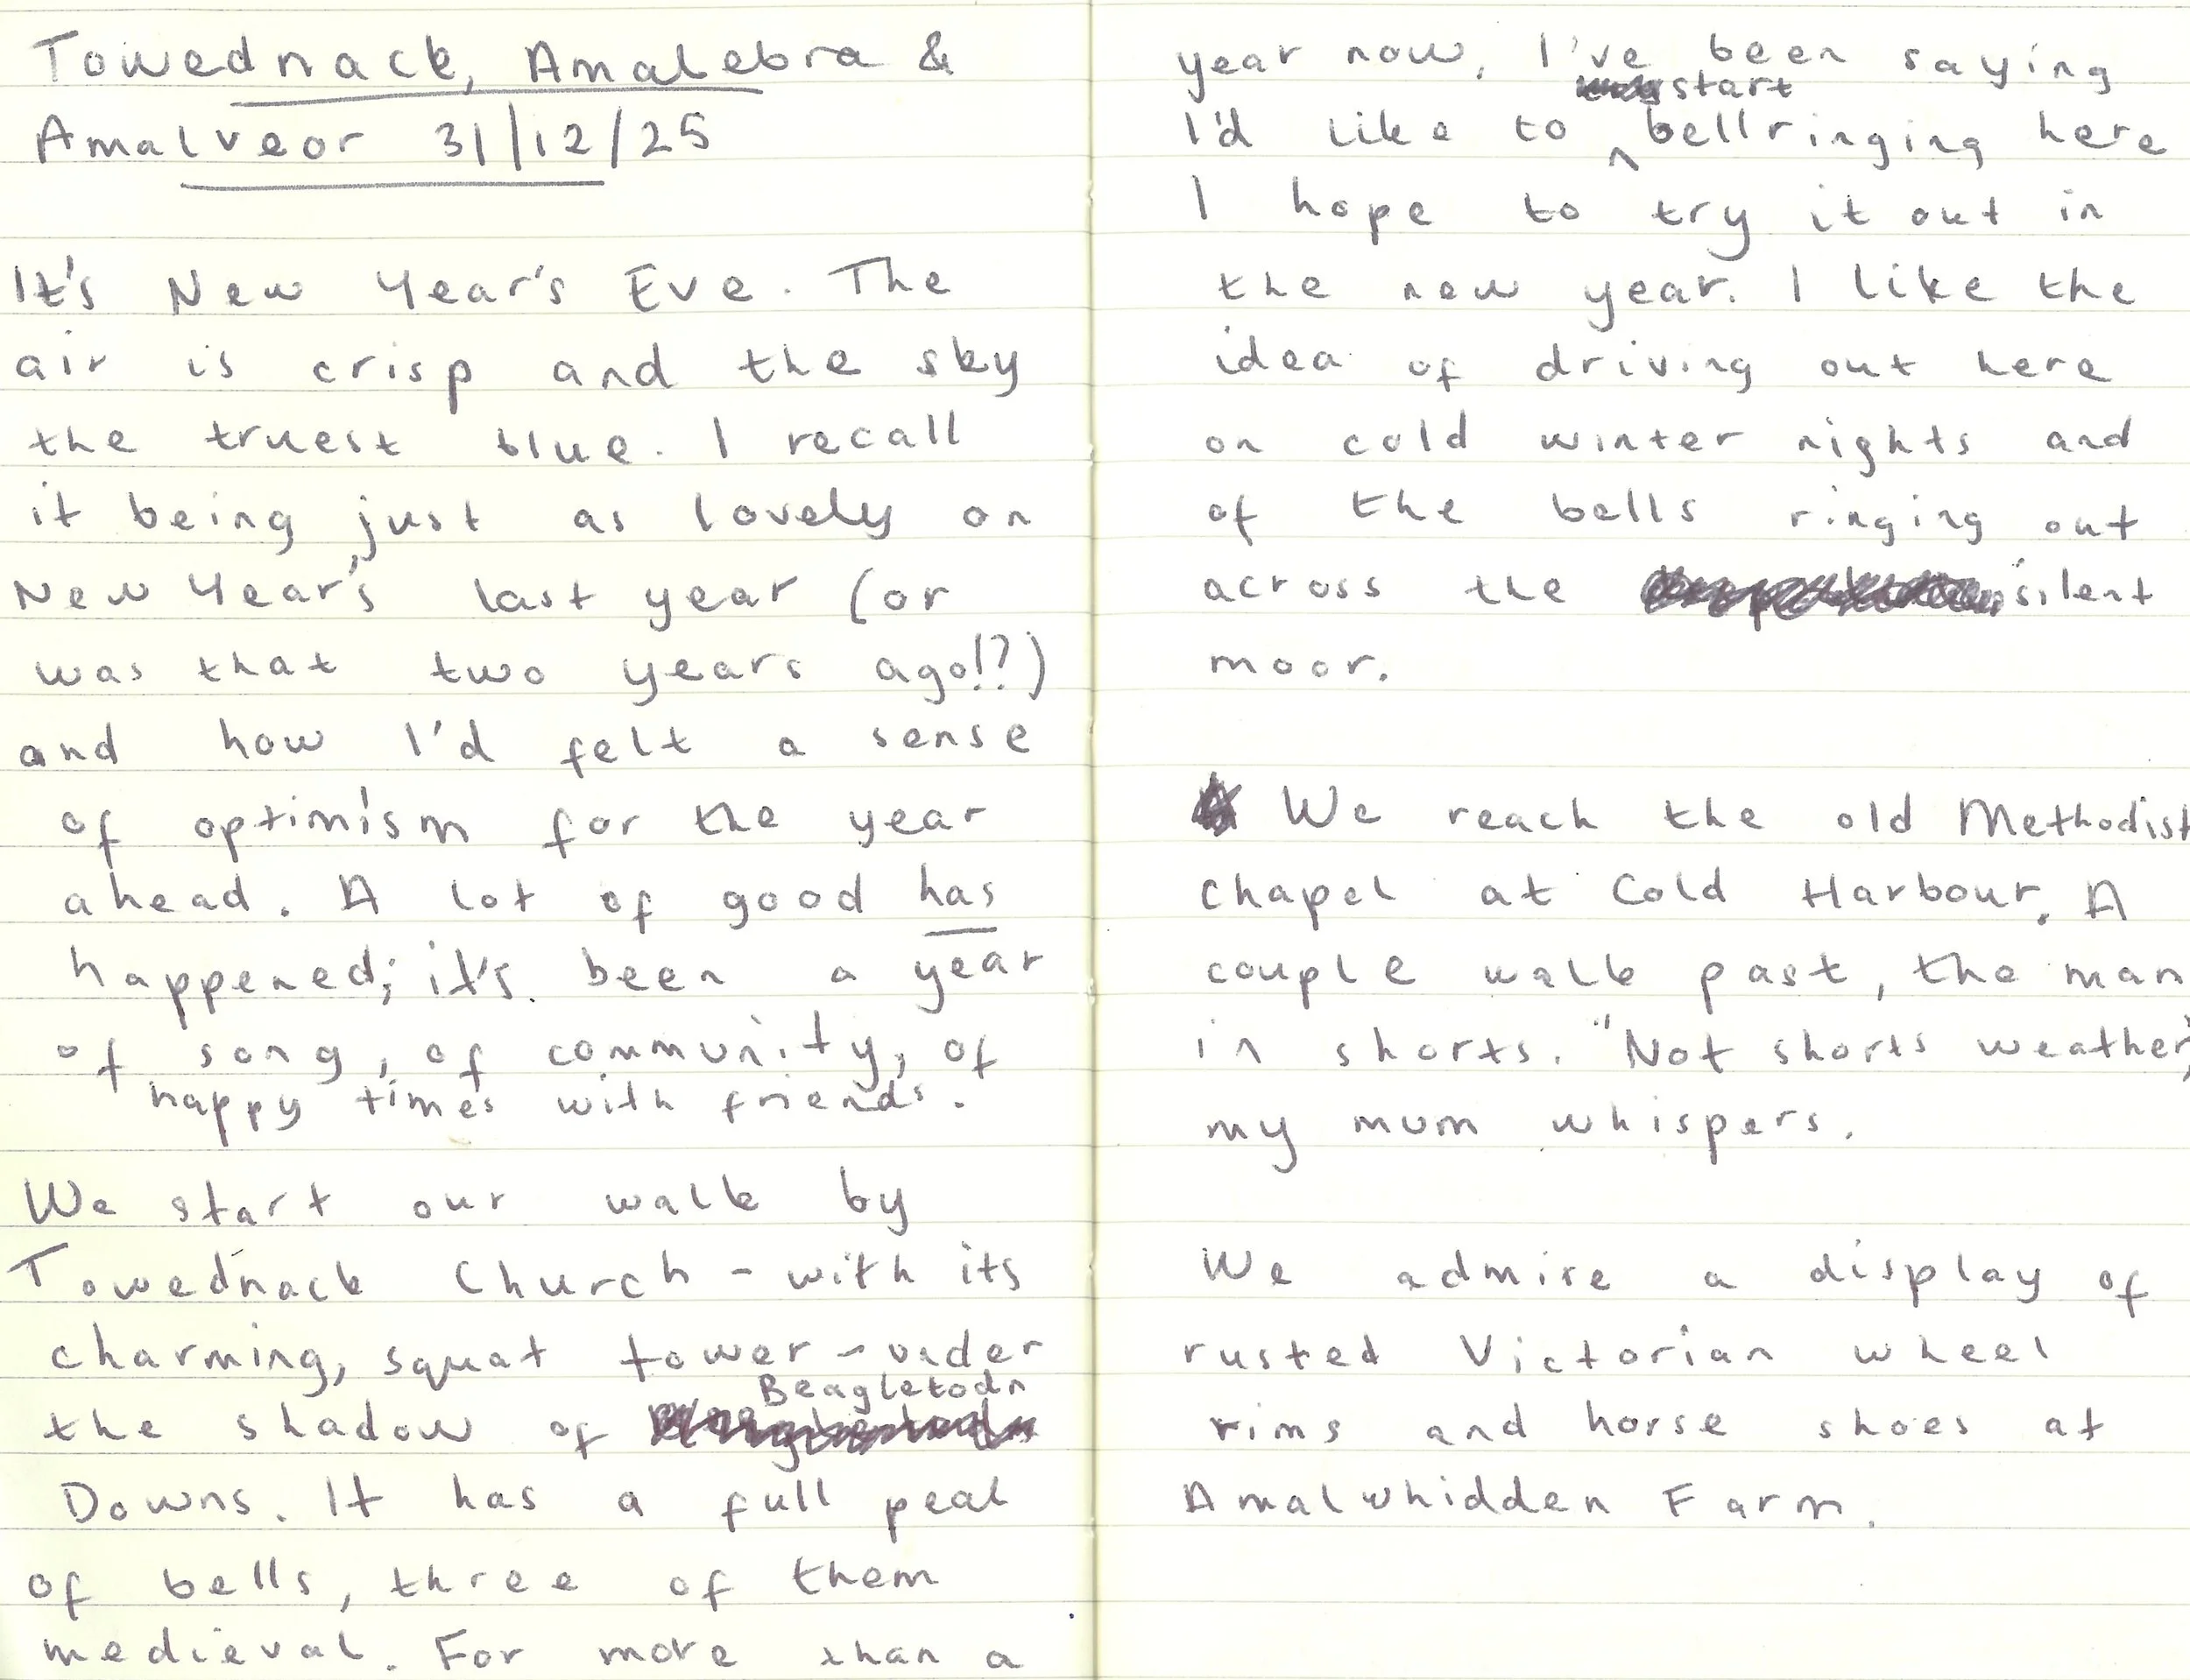 Towednack, Amalebra &
Amalveor 31/12/25
It's New Year's Eve. The
air is crisp and the sky
the truest blue. I recall
it being just as lovely on
New Year's last year (or
was that two years ago!?)
and how I'd felt a sense
of optimism for the year
ahead. A lot of good has
happened; it's been a year
of song, of community, of
happy times with friends.
We start our walk by
Towednack Church - with its
charming, squat tower - under
Beagletodn
the shadow of
Downs. It has a full peal
of bells, three of them
medieval. For more than a
year now, I've been saying
start
I'd like to ^ bellringing here
I hope to try it out in
the new year. I like the
idea of driving out here
on cold winter nights and
of the bells ringing out
across the silent
moor.
We reach the old Methodist
chapel at Cold Harbour. A
couple walk past, the man
in shorts. "Not shorts weather",
my mum whispers.
We admire a display of
rusted Victorian wheel
rims and horse shoes at
Amalwhidden Farm.